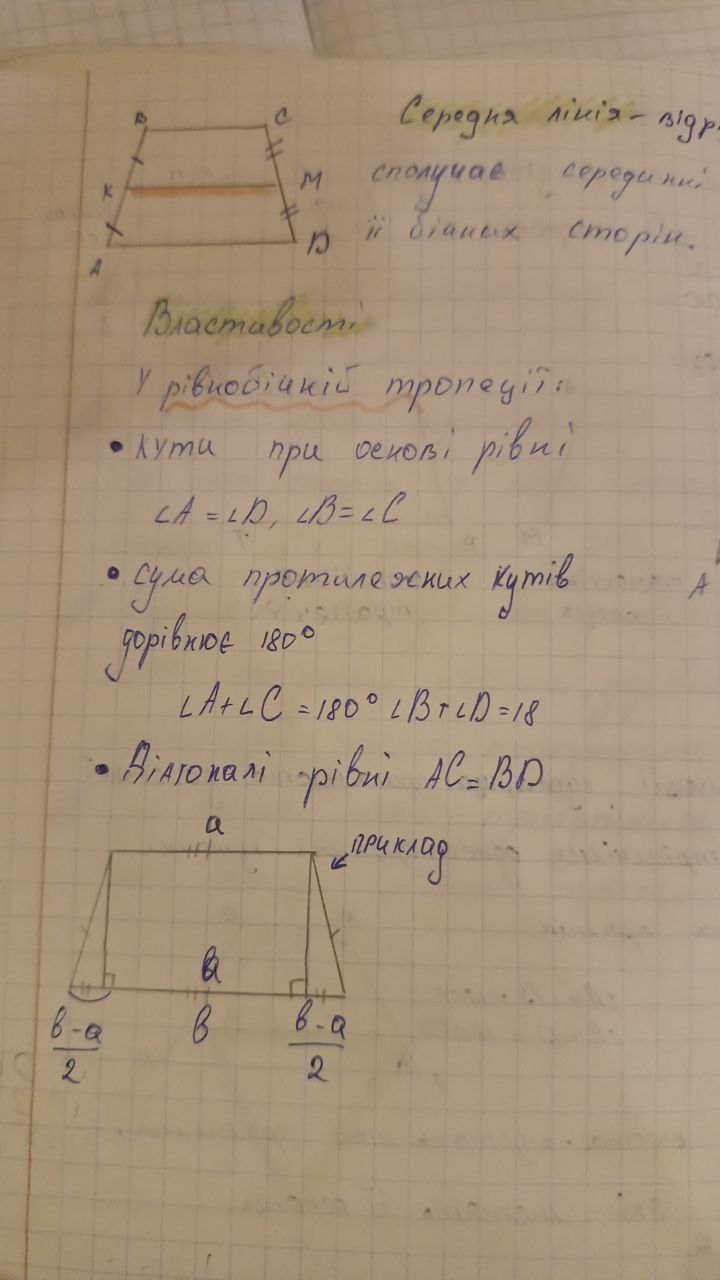 B C
K M
A D
Середня лінія – відр
сполучає середини
її бічних сторін.
Властивості
У рівнобічній тропеції:
• Кути при основі рівні
∠A = ∠D, ∠B = ∠C
• Сума протилежних кутів
дорівнює 180°
∠A + ∠C = 180° ∠B + ∠D = 18
• Діагоналі рівні AC = BD
a
приклад
a
в - a
2
в
в - a
2
A